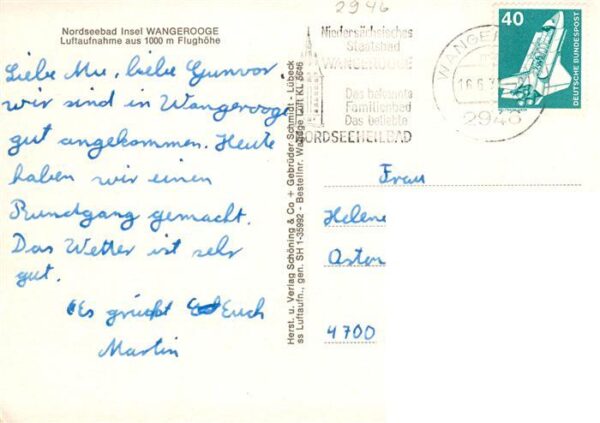 Nordseebad Insel WANGEROOGE
Luftaufnahme aus 1000 m Flughöhe
Liebe Mu, liebe Gunvor.
wir sind in Wangerooge
gut angekommen. Heute
haben wir einen
Rundgang gemacht.
Das Wetter ist sehr
gut.
Es grüßt Euch
Martin
Herst. u. Verlag Schöning & Co + Gebrüder Schmidt - Lübeck
ss Luftaufn., gen. SH 1-35992 - Bestellnr. Wangooge Luft KL 5646
2946
Niedersächsisches
Staatsbad
WANGEROOGE
Das bekannte
Familienbad
Das beliebte
NORDSEEHEILBAD
2946
40
DEUTSCHE BUNDESPOST
Frau
Helene
4700